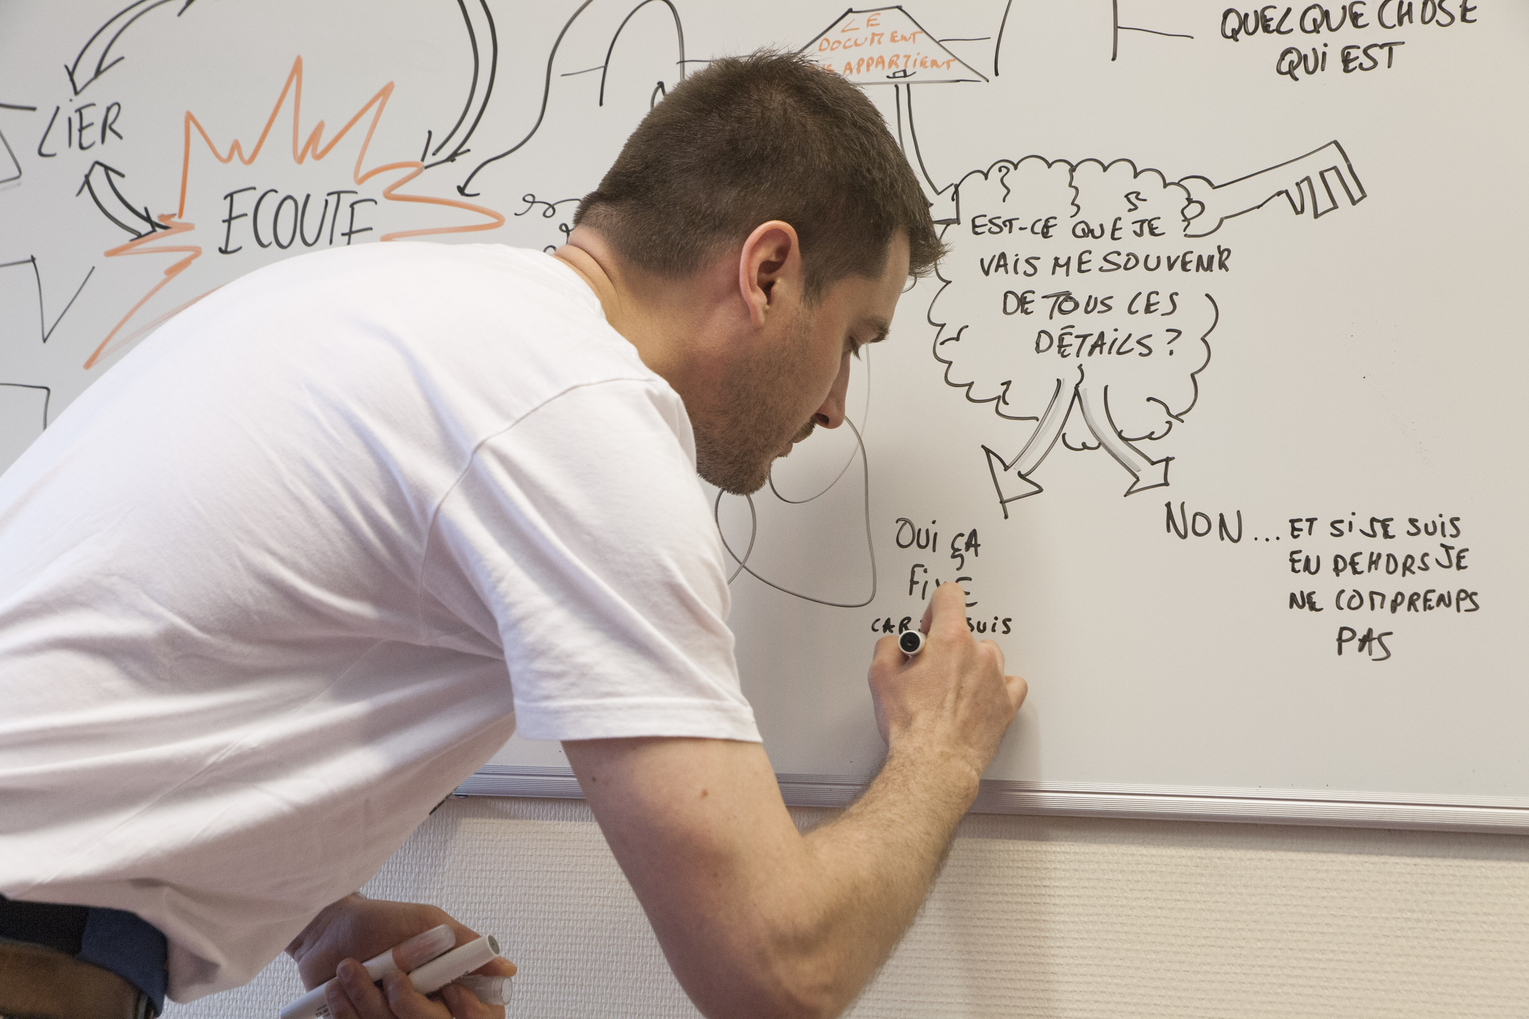 QUELQUE CHOSE
QUI EST
LE
DOCUMENT
APPARTIENT
LIER
ECOUTE
EST-CE QUE JE
VAIS ME SOUVENIR
DE TOUS CES
DÉTAILS ?
OUI ÇA
CAR SUIS
NON... ET SI JE SUIS
EN DEHORS JE
NE COMPRENDS
PAS